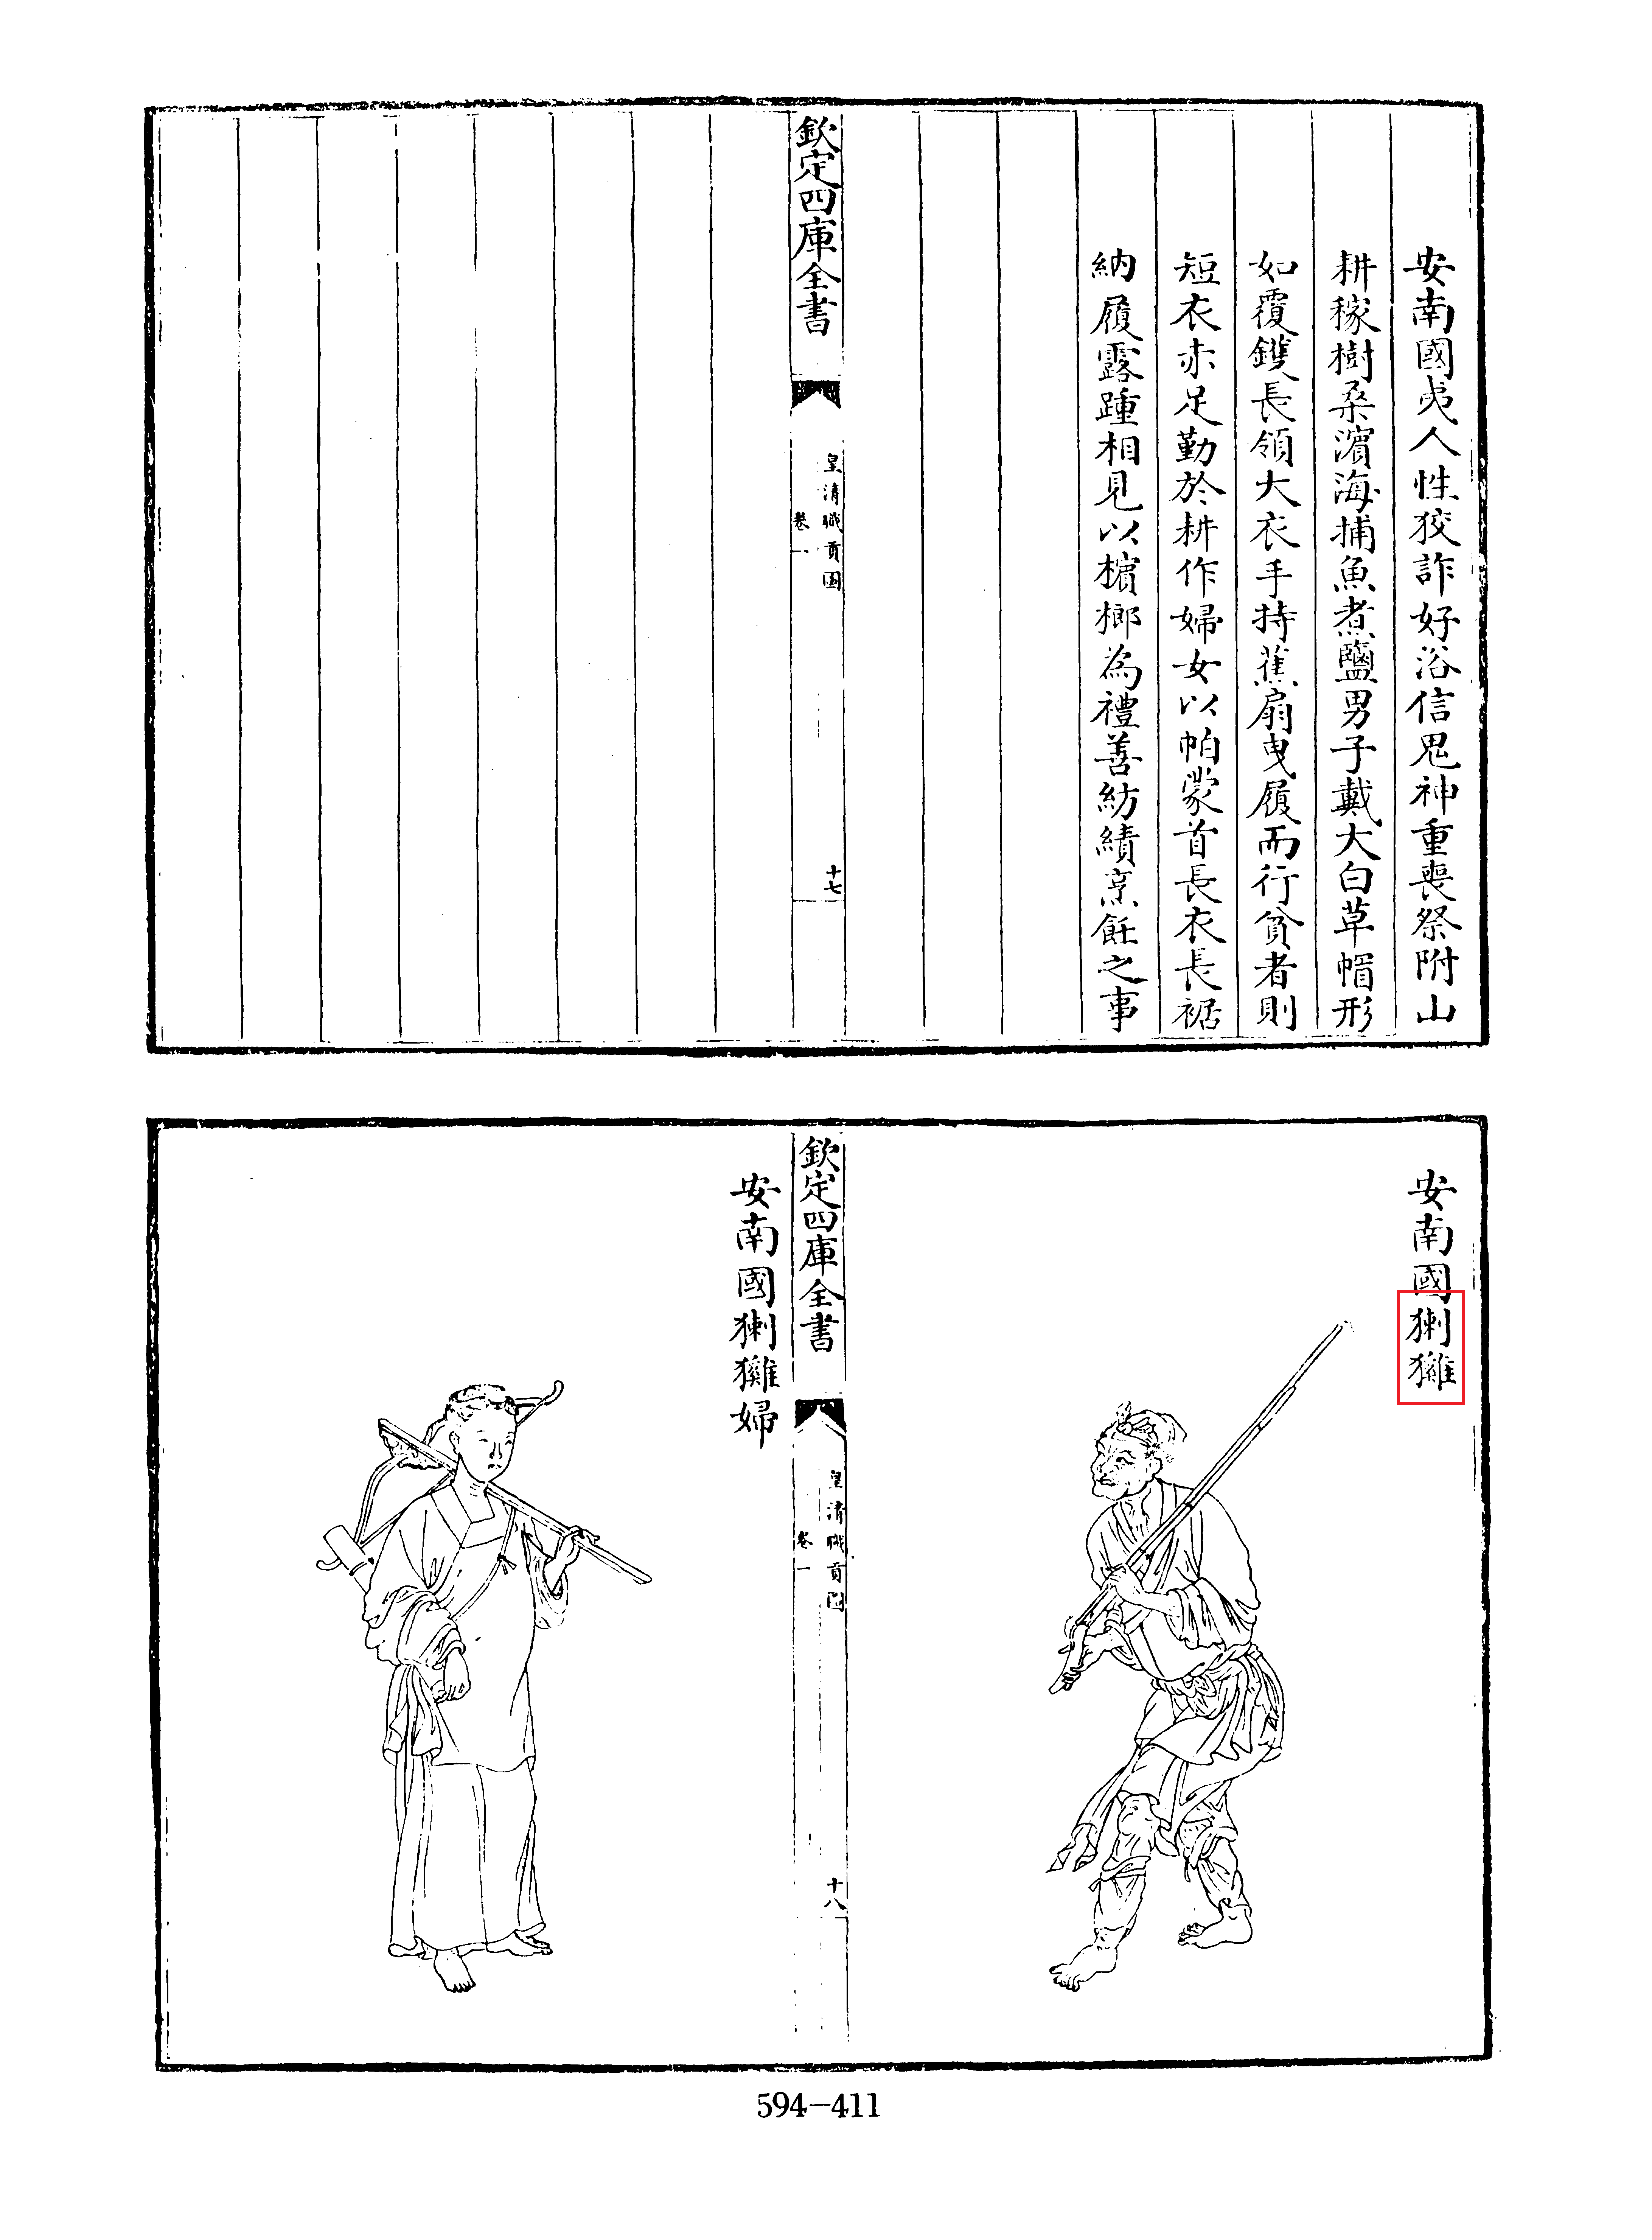 安南國夷人性狡詐好浴信鬼神重喪祭附山
耕稼樹桑濵海捕魚煮鹽男子戴大白草帽形
如覆鑊長領大衣手持蕉扇曳履而行貧者則
短衣赤足勤於耕作婦女以帕蒙首長衣長裾
納履露踵相見以檳榔為禮善紡績烹飪之事
欽定四庫全書
皇清職貢圖
卷一
十七
安南國
欽定四庫全書
皇清職貢圖
卷一
十八
安南國婦
594-411